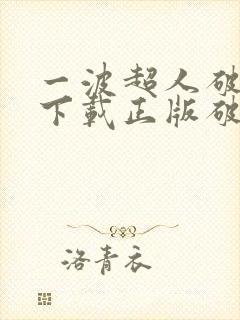 一波超人破
下載正版破
洛青衣